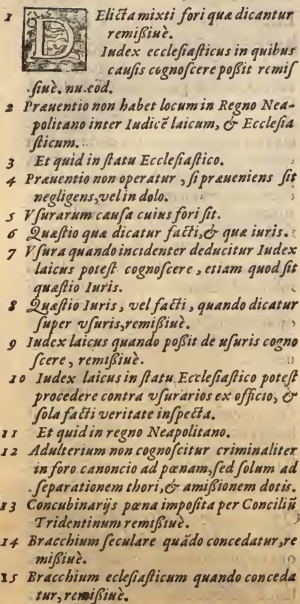 1 DElicta mixti fori quæ dicantur
remißiuè.
Iudex ecclesiasticus in quibus
causis cognoscere poßit remis
siuè. nu. eod.
2 Præuentio non habet locum in Regno Nea-
politano inter Iudicē laicum, & Ecclesia
sticum.
3 Et quid in statu Ecclesiastico.
4 Præuentio non operatur, si præueniens sit
negligens, vel in dolo.
5 Vsurarum causa cuius fori sit.
6 Quæstio quæ dicatur facti, & quæ iuris.
7 Vsura quando incidenter deducitur Iudex
laicus potest cognoscere, etiam quod sit
quæstio Iuris.
8 Quæstio Iuris, vel facti, quando dicatur
super vsuris, remißiuè.
9 Iudex laicus quando poßit de usuris cogno
scere, remißiuè.
10 Iudex laicus in statu Ecclesiastico potest
procedere contra vsurarios ex officio, &
sola facti veritate inspecta.
11 Et quid in regno Neapolitano.
12 Adulterium non cognoscitur criminaliter
in foro canoncio ad pœnam, sed solum ad
separationem thori, & amißionem dotis.
13 Concubinarijs pœna imposita per Conciliū
Tridentinum remißiuè.
14 Bracchium seculare quādo concedatur, re
mißiuè.
15 Bracchium eclesiasticum quando conceda
tur, remißiuè.